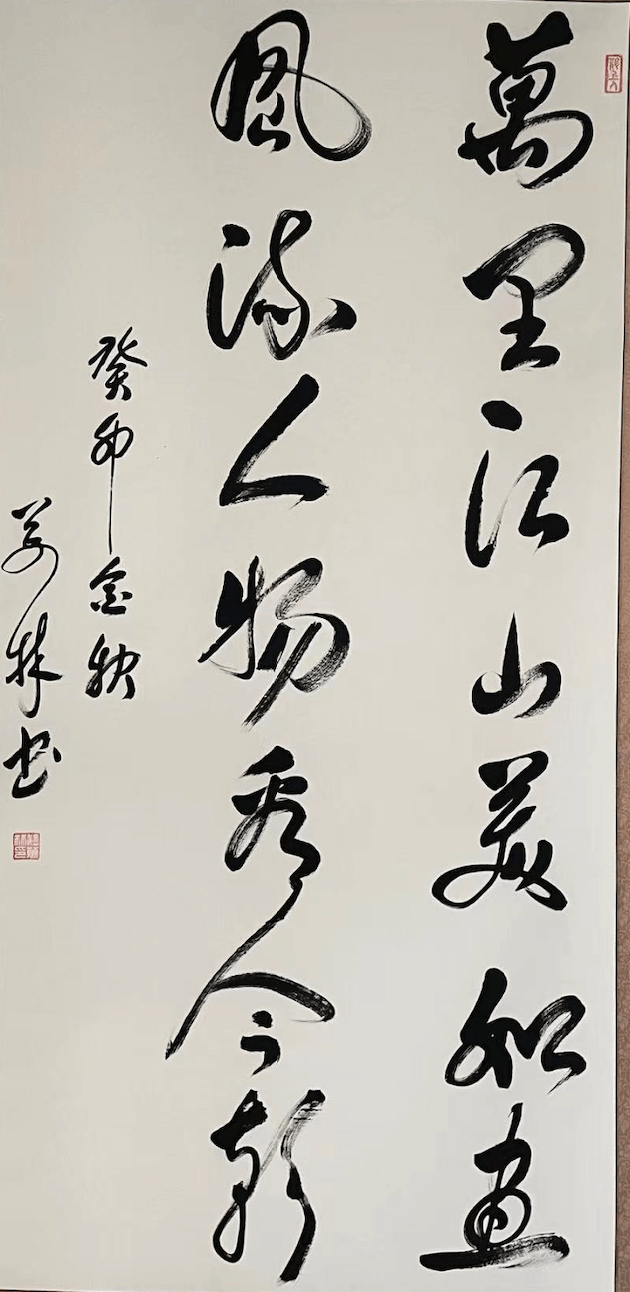 萬里江山美如畫
風流人物秀今朝
癸卯金秋
林书